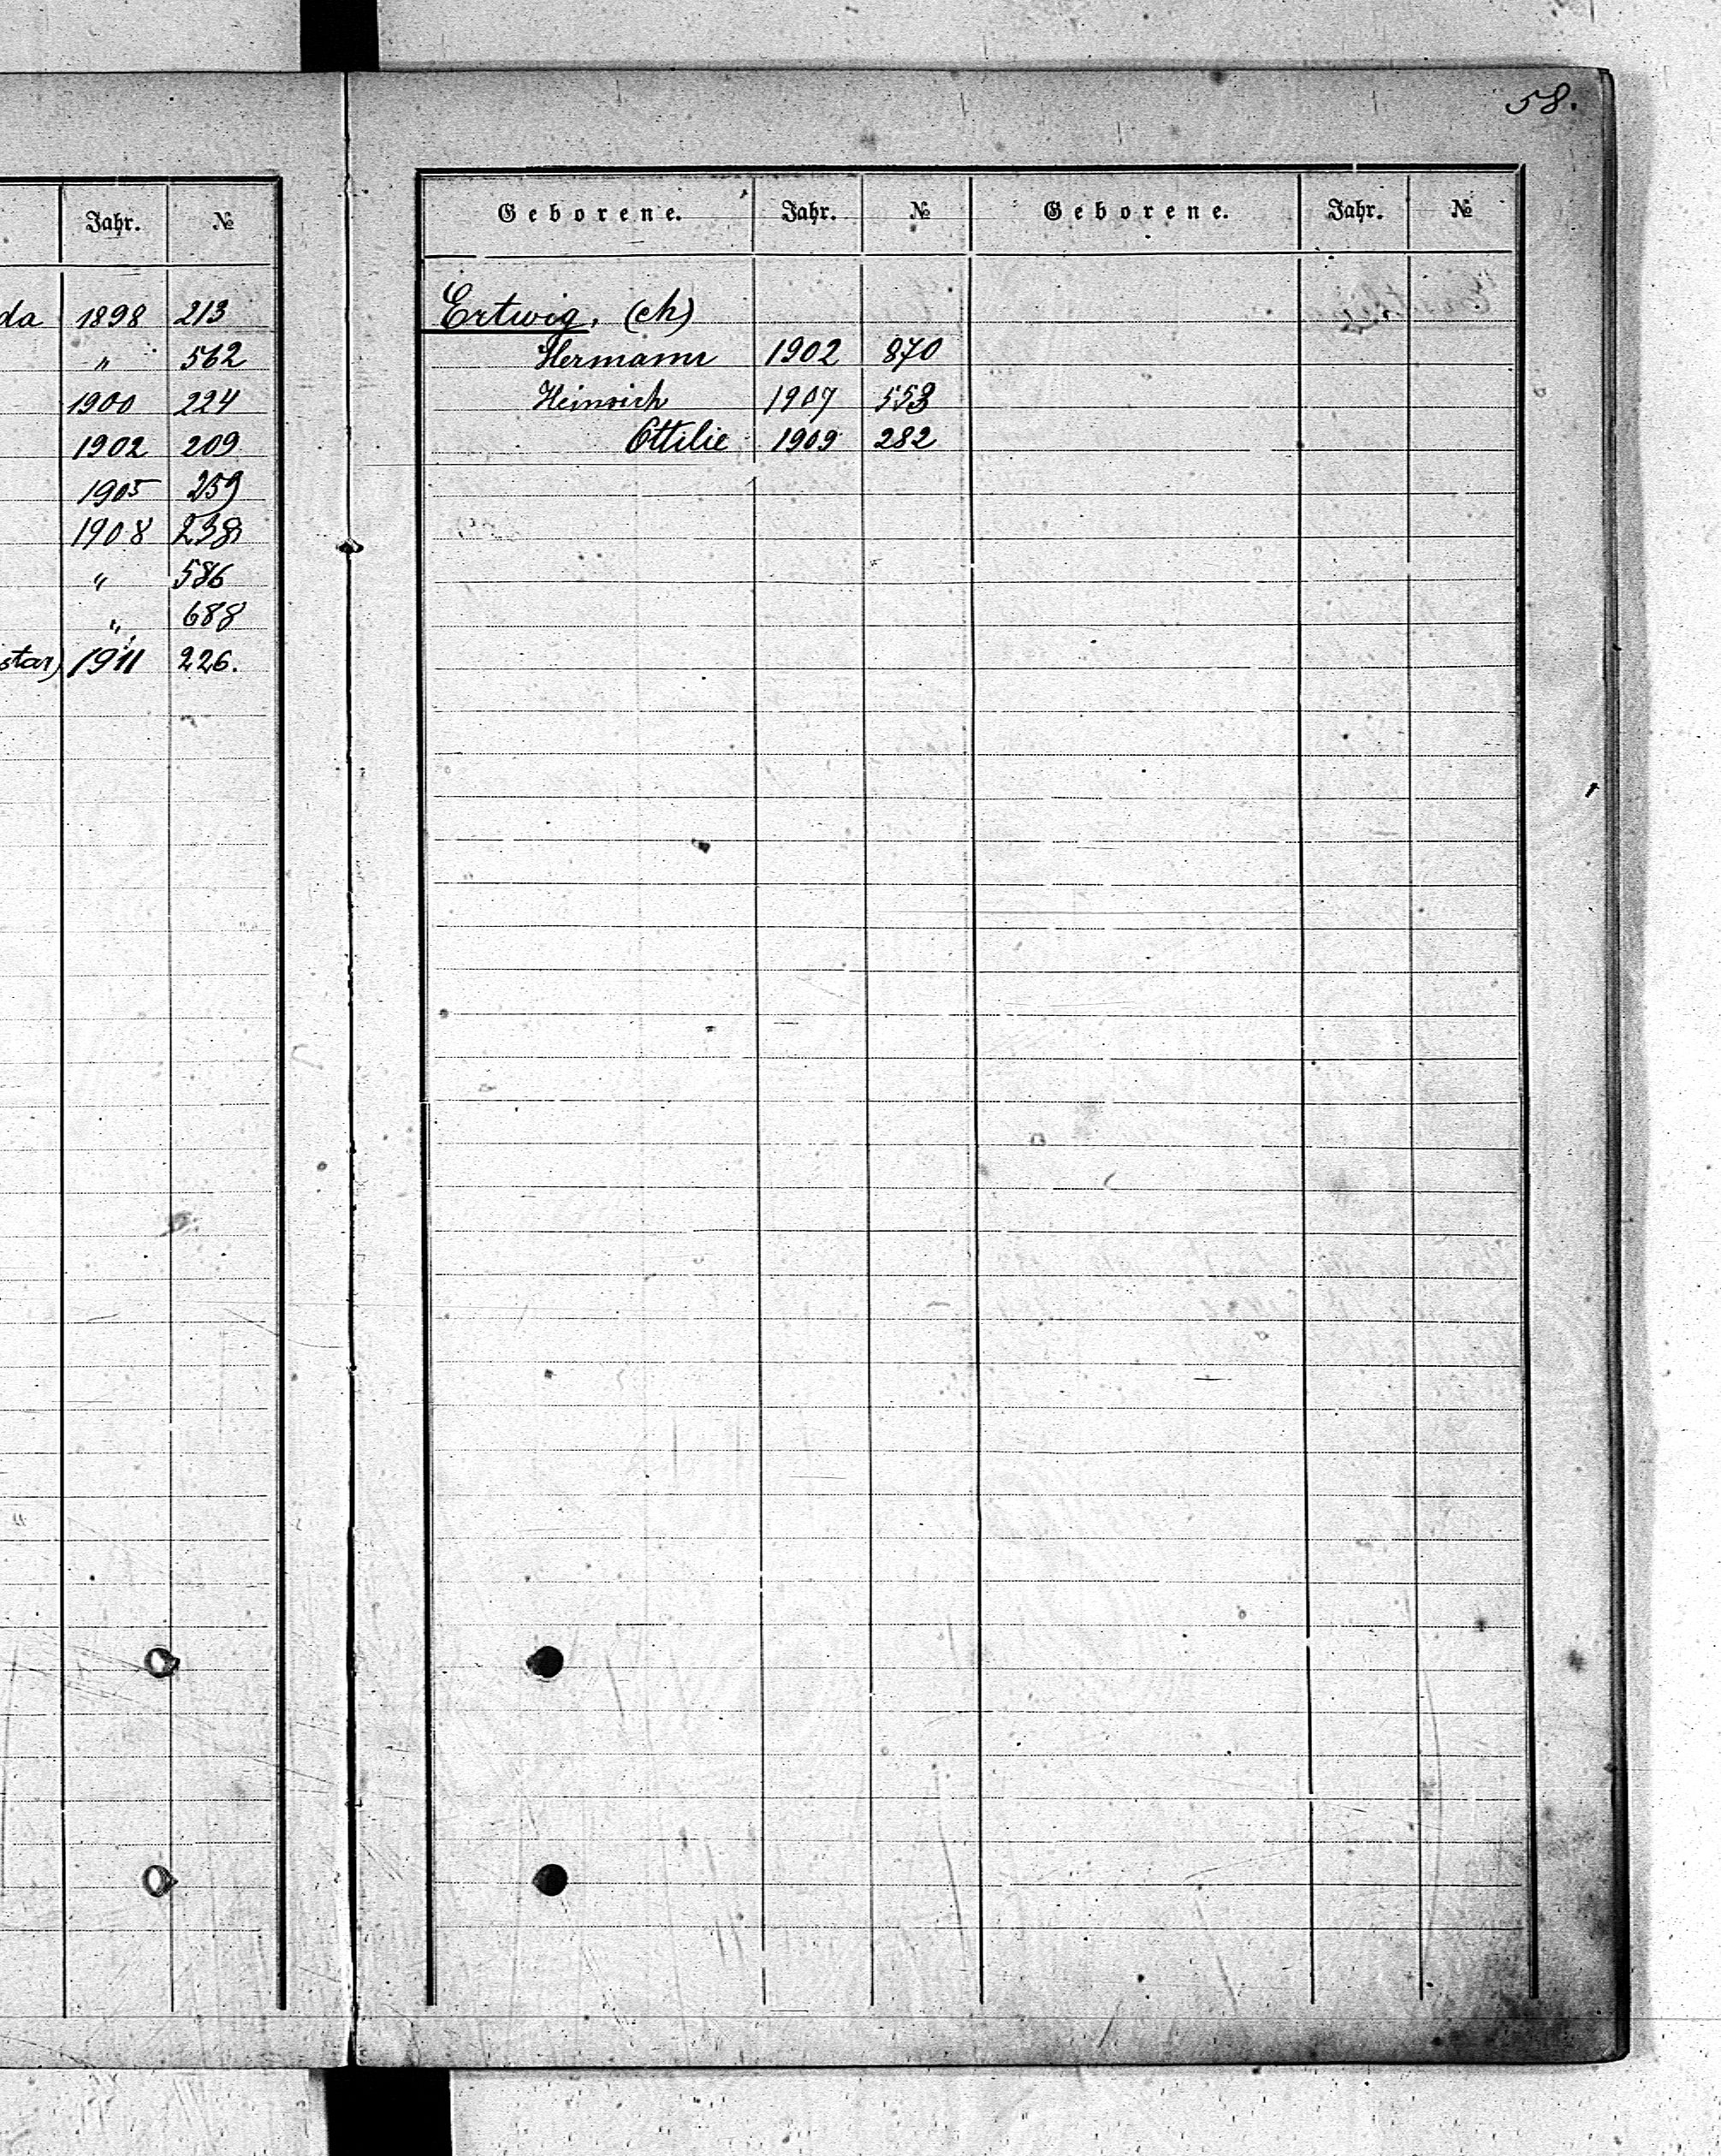 58.
Jahr. №
da 1898 213
" 562
1900 224
1902 209
1905 259
1908 238
" 586
" 688
star) 1911 226.
Geborene. Jahr. № Geborene. Jahr. №
Ertwig, (ch)
Hermann 1902 870
Heinrich 1907 553
Ottilie 1909 282